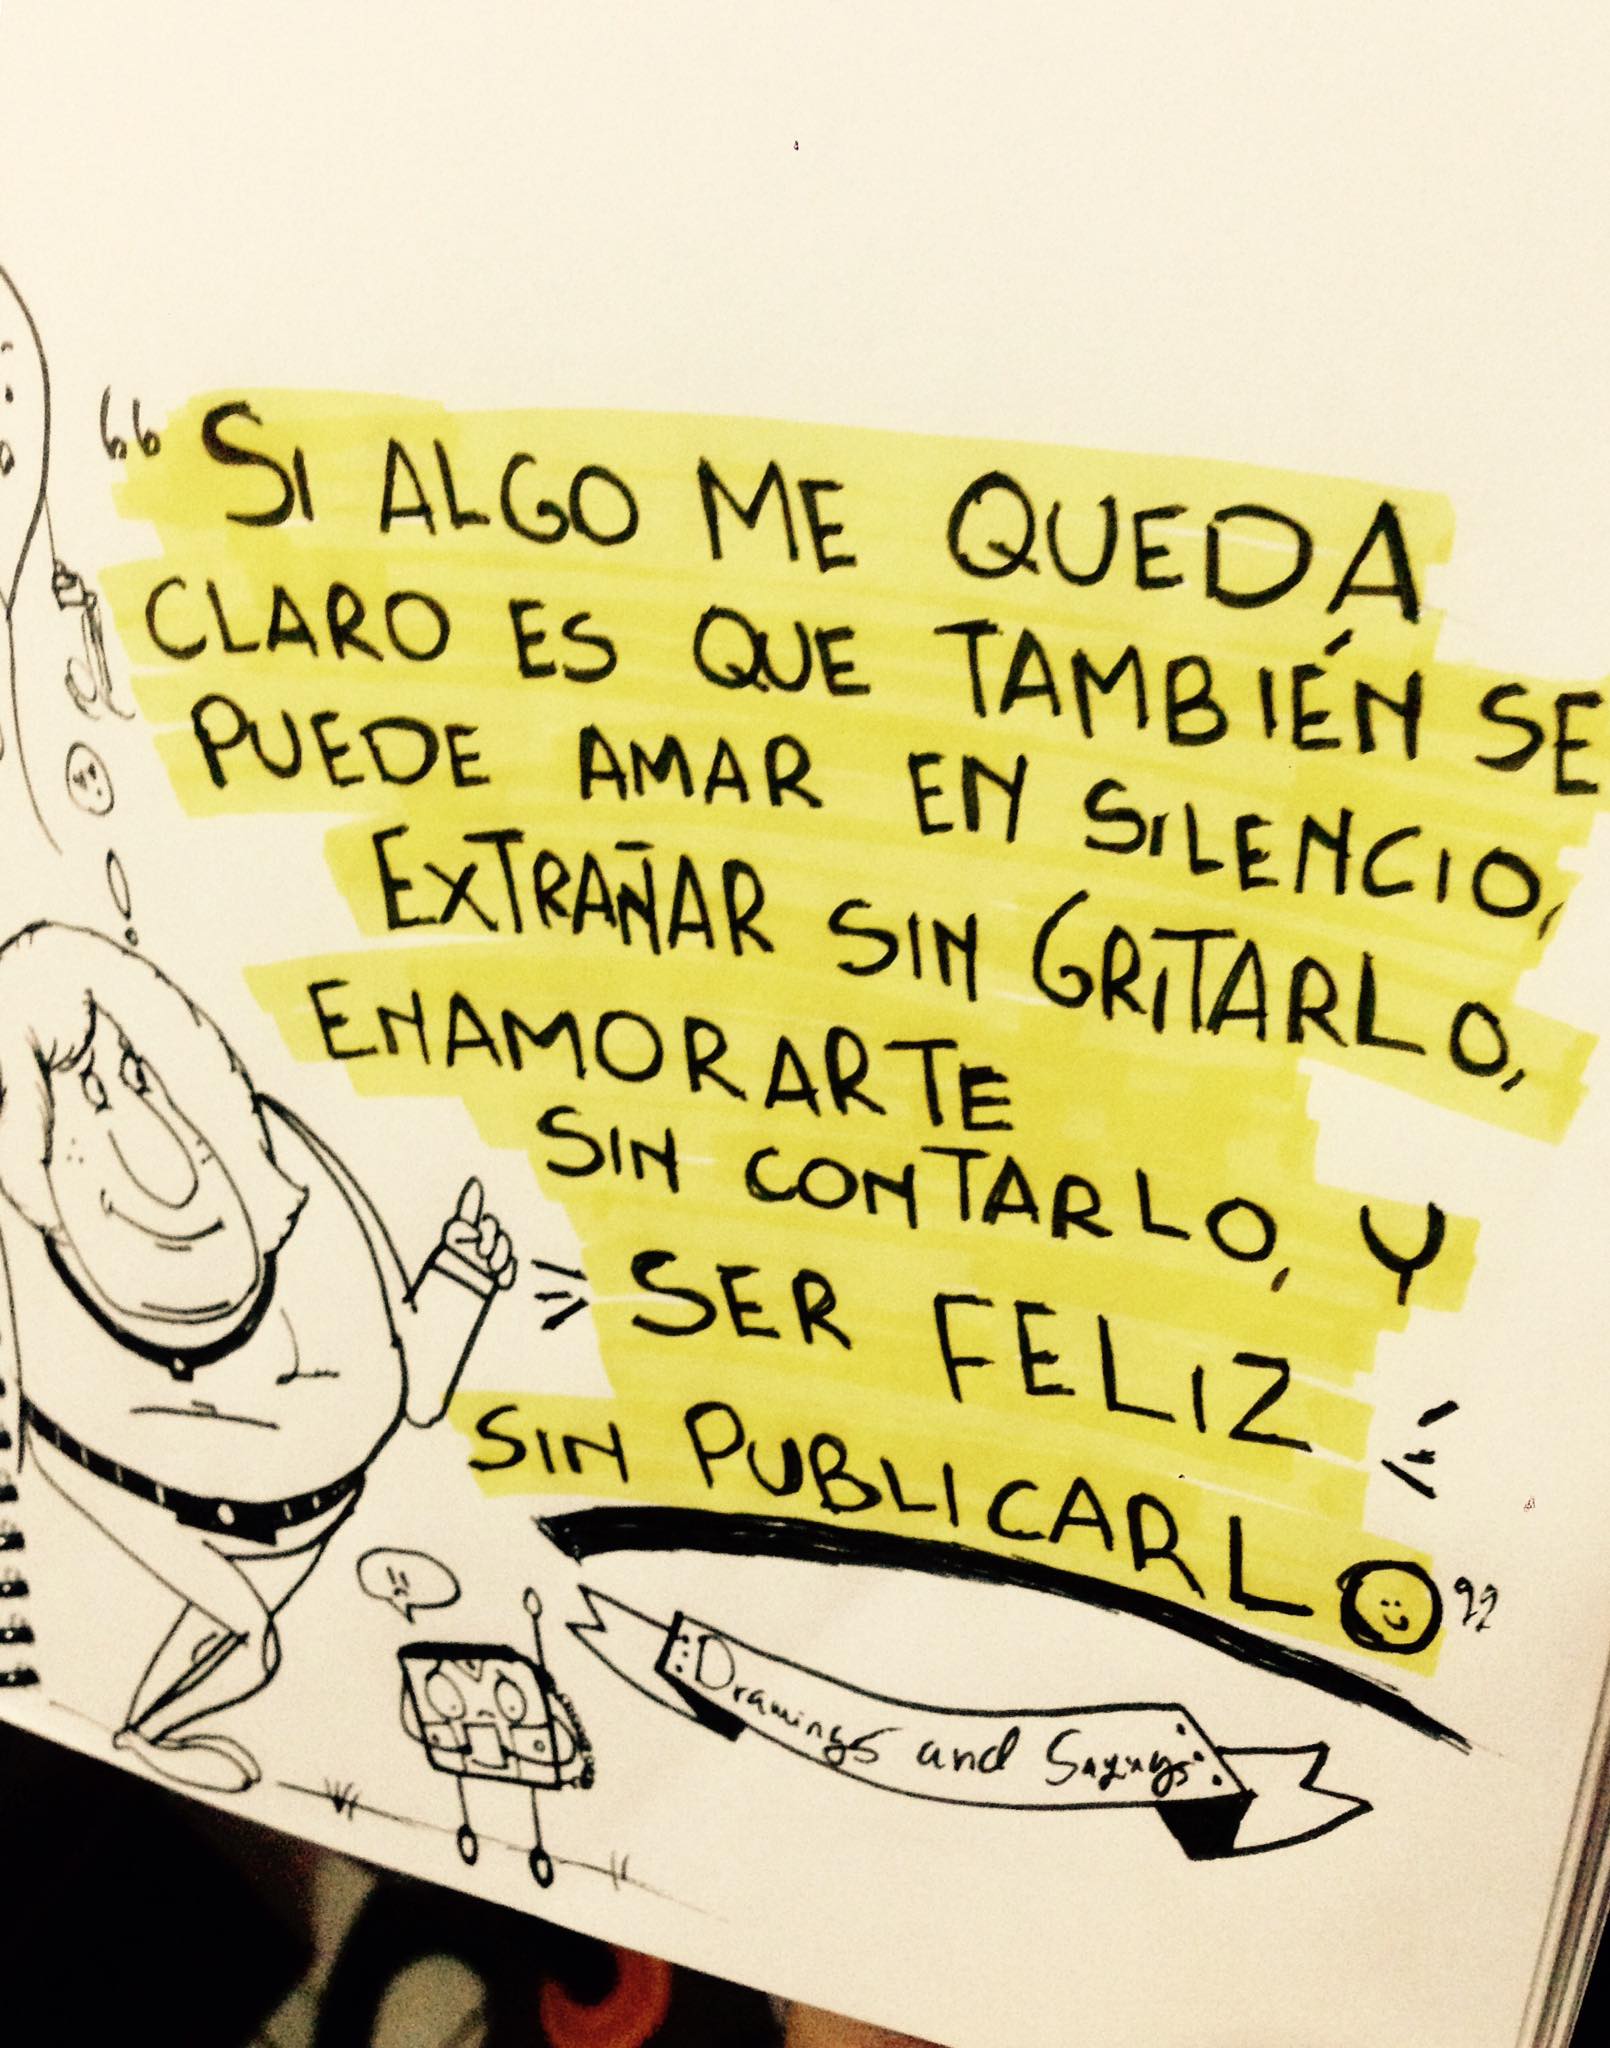 “SI ALGO ME QUEDA
CLARO ES QUE TAMBIÉN SE
PUEDE AMAR EN SILENCIO,
EXTRAÑAR SIN GRITARLO,
ENAMORARTE
SIN CONTARLO, Y
SER FELIZ
SIN PUBLICARLO”
Drawings and Sayings